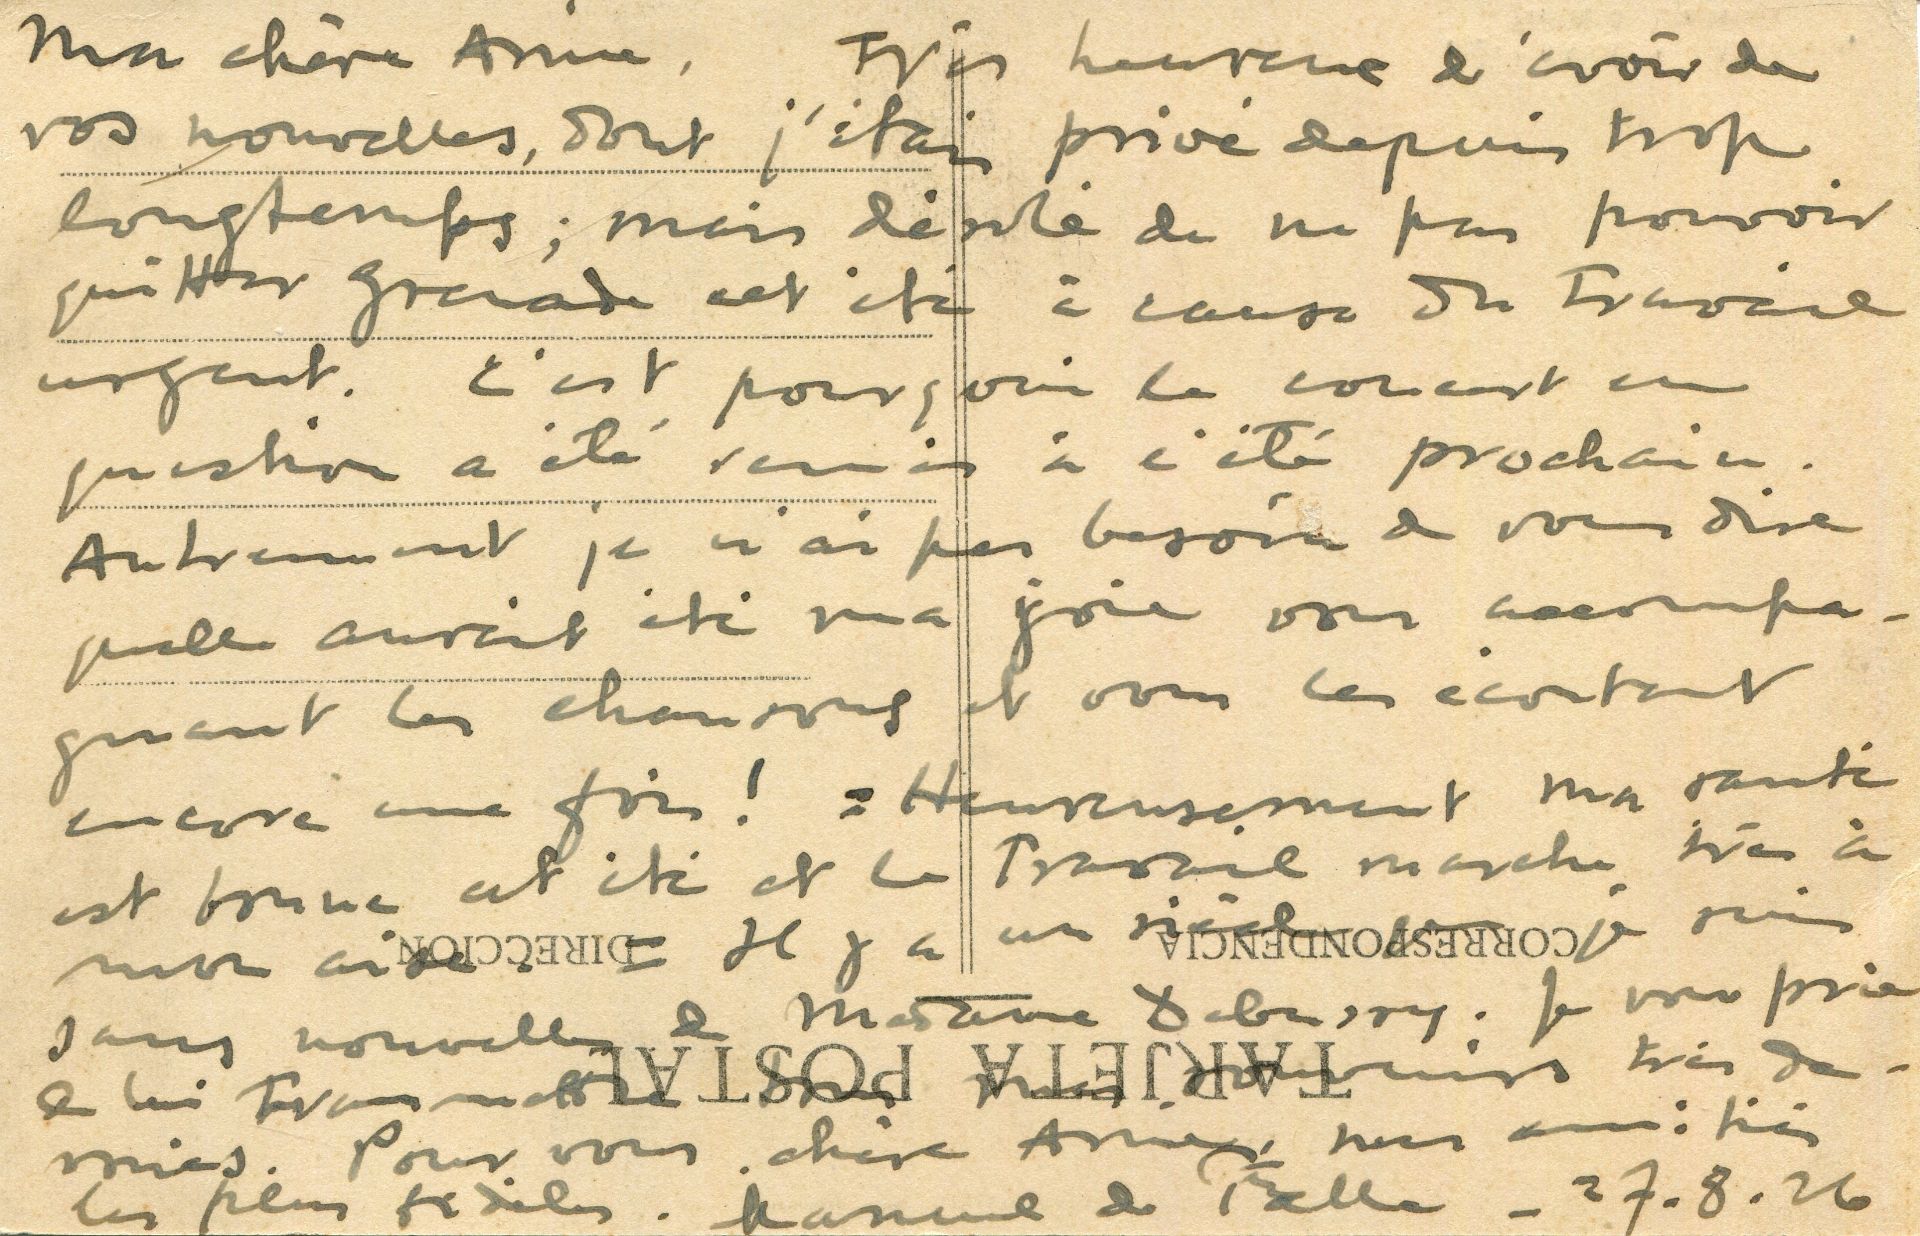 Ma chère Amie, Très heureux d'avoir de
vos nouvelles, dont j'étais privé depuis trop
longtemps; mais désolé de ne pas pouvoir
quitter Grenade cet été à cause du travail
urgent. C'est pourquoi le concert en
question a été remis à l'été prochain.
Autrement je n'ai pas besoin de vous dire
quelle aurait été ma joie vous accompa-
gnant les chansons et vous les écoutant
encore une fois! = Heureusement ma santé
est bonne cet été et le travail marche très à
mon aise. = Il y a un siècle que je suis
DIRECCIÓN
CORRESPONDENCIA
sans nouvelles de Madame Debussy. Je vous prie
TARJETA POSTAL
de lui transmettre mes souvenirs très dé-
voués. Pour vous, chère Amie, mes amitiés
les plus fidèles. Manuel de Falla - 27.8.26